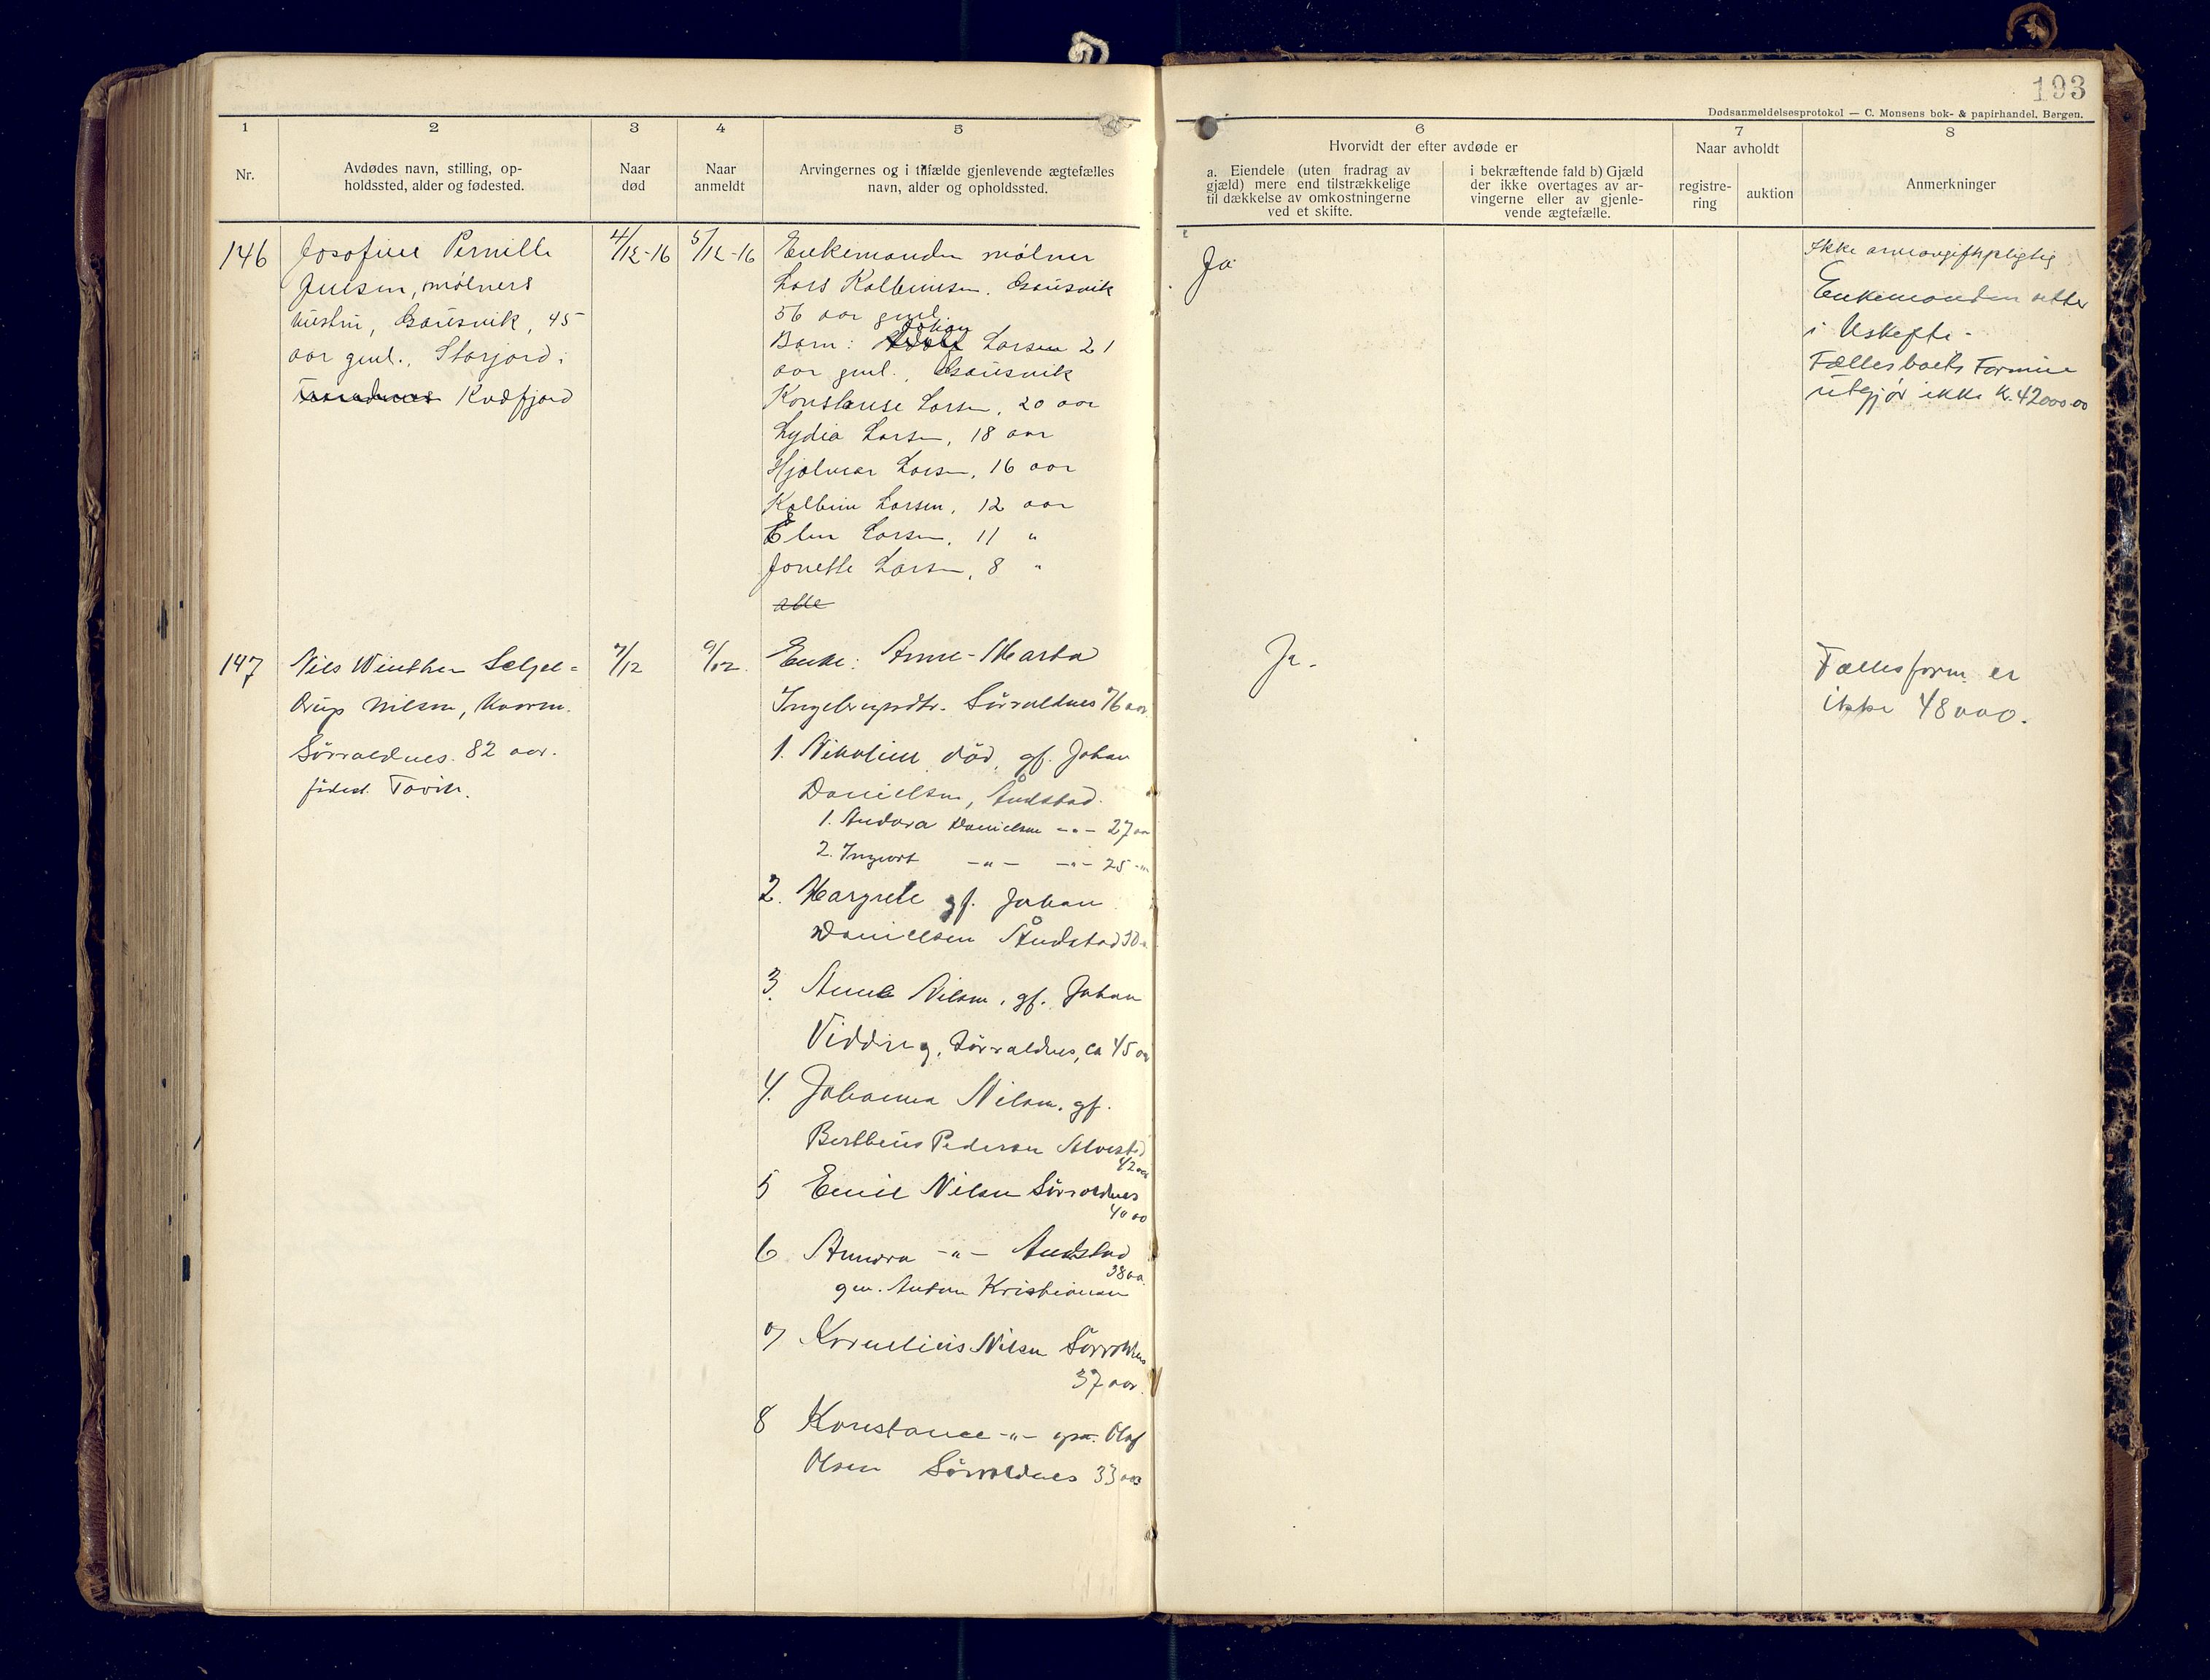 193
Dødsanmeldelsesprotokol — C. Monsens bok- & papirhandel. Bergen.
1
2
3
4
5
6
7
8
Nr.
Avdødes navn, stilling, op-
holdssted, alder og fødested.
Naar
død
Naar
anmeldt
Arvingernes og i tilfælde gjenlevende ægtefælles
navn, alder og opholdssted.
Hvorvidt der efter avdøde er
a. Eiendele (uten fradrag av
gjæld) mere end tilstrækkelige
til dækkelse av omkostningerne
ved et skifte.
i bekræftende fald b) Gjæld
der ikke overtages av ar-
vingerne eller av gjenle-
vende ægtefælle.
Naar avholdt
registre-
ring
auktion
Anmerkninger
146
Josefine Pernille
Julsen, mølners
hustru, Gausvik, 45
aar gml., Storjord i
Trondenes Kvæfjord
4/12-16
5/12-16
Enkemanden mølner
Lars Kolbeinsen. Gausvik
56 aar gml.
Johan
Barn: Larsen 21
aar gml., Gausvik
Konstanse Larsen, 20 aar
Lydia Larsen, 18 aar
Hjalmar Larsen, 16 aar
Kolbein Larsen, 12 aar
Elen Larsen, 11 "
Jonette Larsen, 8 "
alle
Ja
Ikke arveavgiftspligtig
Enkemanden sitter
i Uskifte -
Fællesboets Formue
utgjør ikke kr. 42000.00
147
Nils Winther Seljel=
drup Nilsen, kaarm.
Sørroldnes. 82 aar.
fødest. Tovik.
7/12
9/12.
Enke: Anne-Marta
Ingebrigtsdtr. Sørroldnes 76 aar.
1. Nikoline, død, gf. Johan
Danielsen, Åndstad.
1. Andora Danielsen -"- 27 aar
2. Ingvart -"- -"- 25 -"-
2. Margrete gf. Johan
Danielsen Åndstad 50
3. Anne Nilsen, gf. Johan
Vidding, Sørroldnes, ca 45 aar
4. Johanna Nilsen, gf.
Bertheus Pedersen Alvestad
42 aar
5 Emil Nilsen Sørroldnes
40 aar
6 -"- Åndstad
38 aa.
gm. Anton Kristiansen
7 Kornelius Nilsen Sørroldnes
37 aar.
8 Konstance -"- gm. Olaf
Olsen Sørroldnes 33 aar
Ja.
Fællesform. er
ikke 48000.